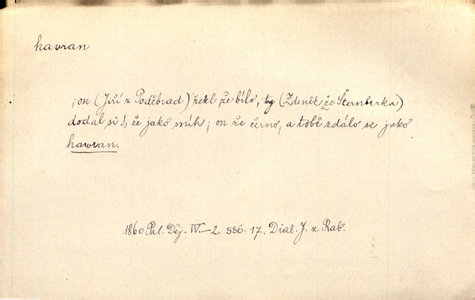 havran
; on (Jiří z Poděbrad) řekl že bílo, ty (Zdeněk ze Šternberka)
dodal si, že jako sníh; on že černo, a tobě zdálo se jako
havran.
1860 Pal. Děj. IV-2. 536. 17. Dial. J. z Rab.